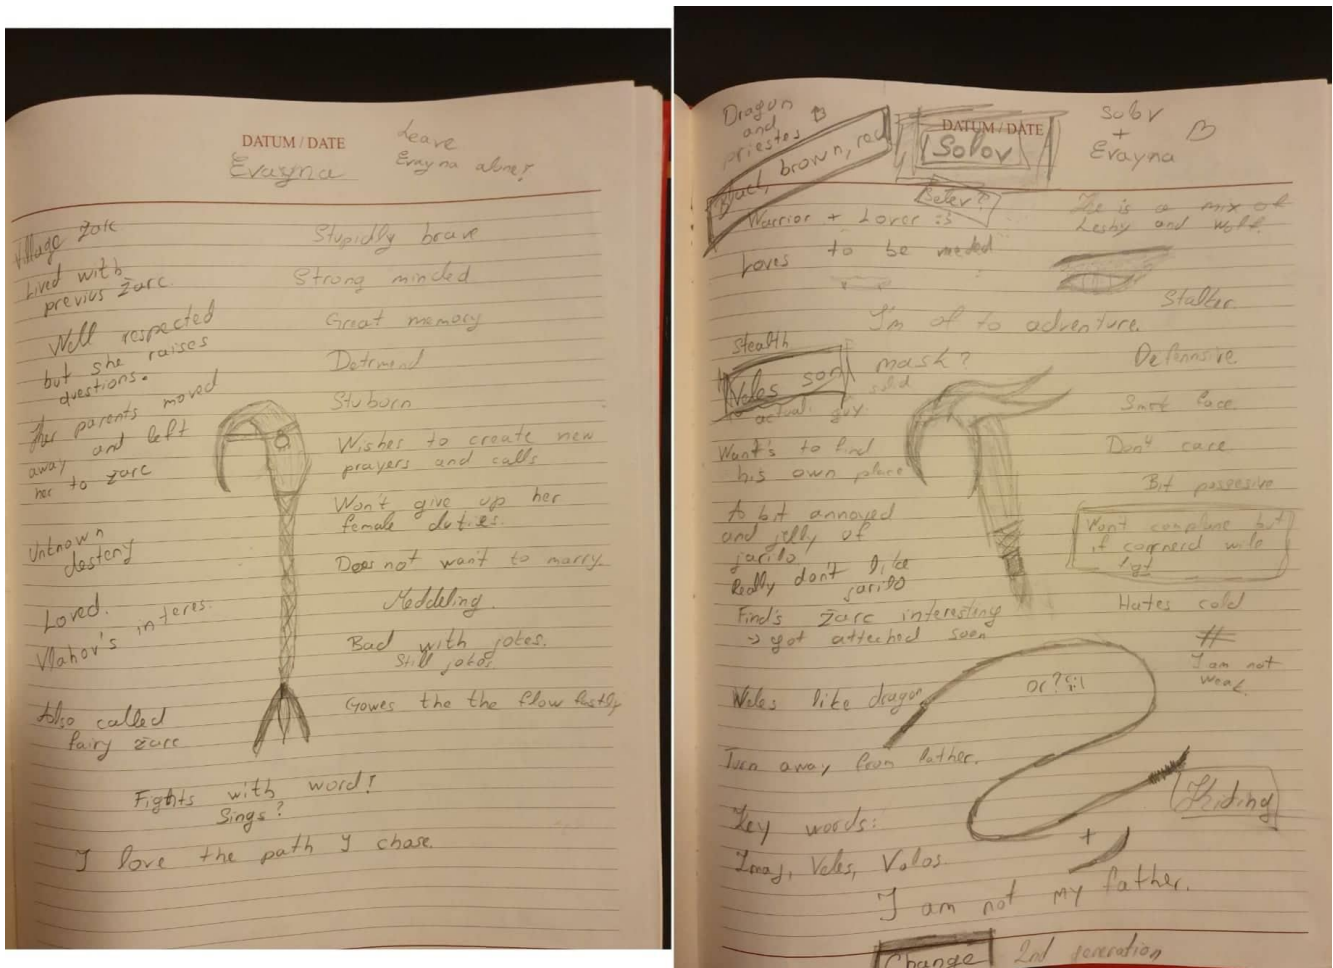 DATUM / DATE
Evayna
Leave
Evayna alone!
Village žarc
Lived with
previus žarc.
Well respected
but she raises
questions.
Her parents moved
away and left
her to žarc
Unknown
desteny
Loved.
Vlahov's interes.
Also called
fairy žarc
Stupidly brave
Strong minded
Great memory
Detrmend
Stuborn
Wishes to create new
prayers and calls
Won't give up her
female duties.
Does not want to marry.
Meddeling.
Bad with jokes.
Still jokes
Gowes the the flow
Fights with word!
Sings?
I love the path I chose.
Dragon
and
priestes
Black, brown, red
DATUM / DATE
Solov
Solov
+
Evayna
Warrior + Lover :3
Loves to be needed
He is a mix of
Leshy and wolf.
Stalker.
I'm of to adventure.
Stealth
Veles son
actual guy.
mask?
Want's to find
his own place
A bit annoyed
and jelly of
jarilo
Really don't like
jarilo
Find's žarc interesting
-> got atteched soon
Veles like dragon
Turn away from father.
Key words:
Zmaj, Veles, Volos
Defennsive.
Don't care
Bit possesive
Won't complane but
if cornerd will
Hates cold
#
I am not
weak.
Or?
Hiding
+
I am not my father.
Change
2nd generation